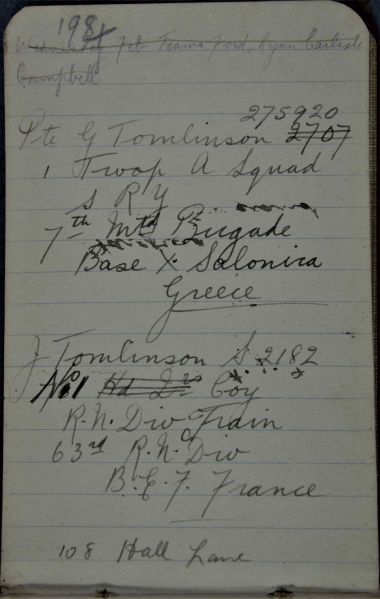 198
Wednesday Feb Teams Ford, Ryan Carlisle
Campbell
275920
Pte G Tomlinson 2707
1 Troop A Squad
S R Y
7th Mtd Brigade
Base X. Salonica
Greece
J Tomlinson S. 2182
No 1 Hd Qrs Coy
R.N. Div Train
63rd R.N. Div
B.E.F. France
108 Hall Lane